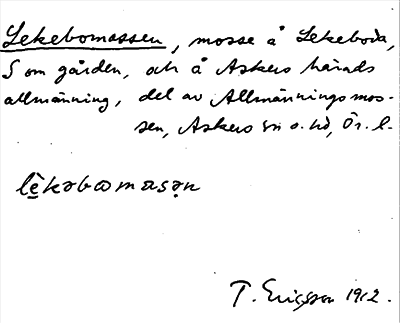 Lekebomossen, mosse å Lekeboda,
S om gården, och å Askers härads
allmänning, del av Allmänningsmos-
sen, Askers sn o. hd, Ör. l.
lèkəbωmasən
T. Ericsson 1912.